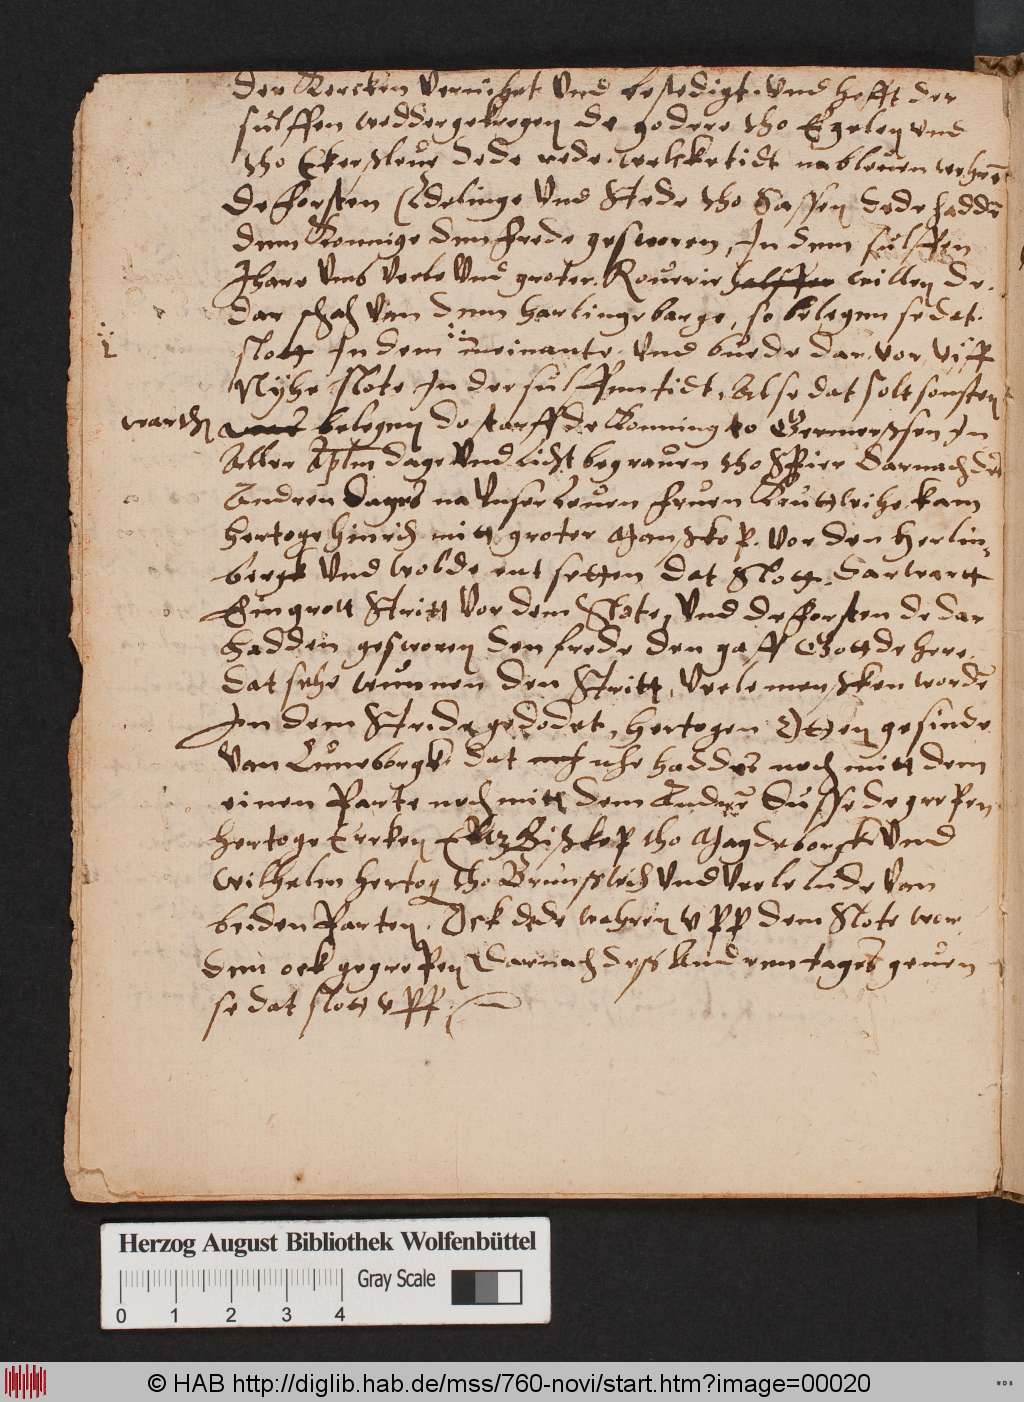 der Kercken vernihet vnd bestedigt. vnd hefft der
sulffen weddergekregen de godere tho Egelen vnd
tho Ekersleue dede rede welcketidt nableuen wehren
De forsten Edelinge vnd Stede tho Sassen dede hadden
dem Konnige den frede gesworen, In dem sulffen
Jhare vmb veele vnd groter Rouerie willen de
dar schach van dem harlingebarge, so belegen se dat
slott In dem meinante vnd buede dar vor viff
Nyhe slote In der suluen tidt, Alse dat solt sonsten
warth belegen do starff de Konning to Germerssen In
Aller Aplm dage vnd licht begrauen tho Spier darnach des
Andren dages na vnser leuen fruen Kruttwihe kam
hertoge hinrich mitt groter Manskop vor den Herlin=
berge vnd wolde entsetten dat Slott, dar wartt
Ein grott Stritt vor dem Slote, vnd de forsten de dar
hadden gesworen den frede den gaff Gott de here
dat sehe wunnen den Stritt, veele mensken worden
In dem Stride gedodet, hertogen Otten gesinde
van Luneborgk dat nhe haddet noch mitt dem
einen Parte noch mitt dem Andren Susse de grepen
hertoge Erken Ertzbiskop tho Magdeborch vnd
Wilhelm hertog tho Brunswich vnd veele lude van
beiden Parten. Ock dede wehren vpp dem Slote wor
den ock gegrepen Darnach dess Andren tages geuen
se dat slott vpff
Herzog August Bibliothek Wolfenbüttel
Gray Scale
0 1 2 3 4
© HAB http://diglib.hab.de/mss/760-novi/start.htm?image=00020